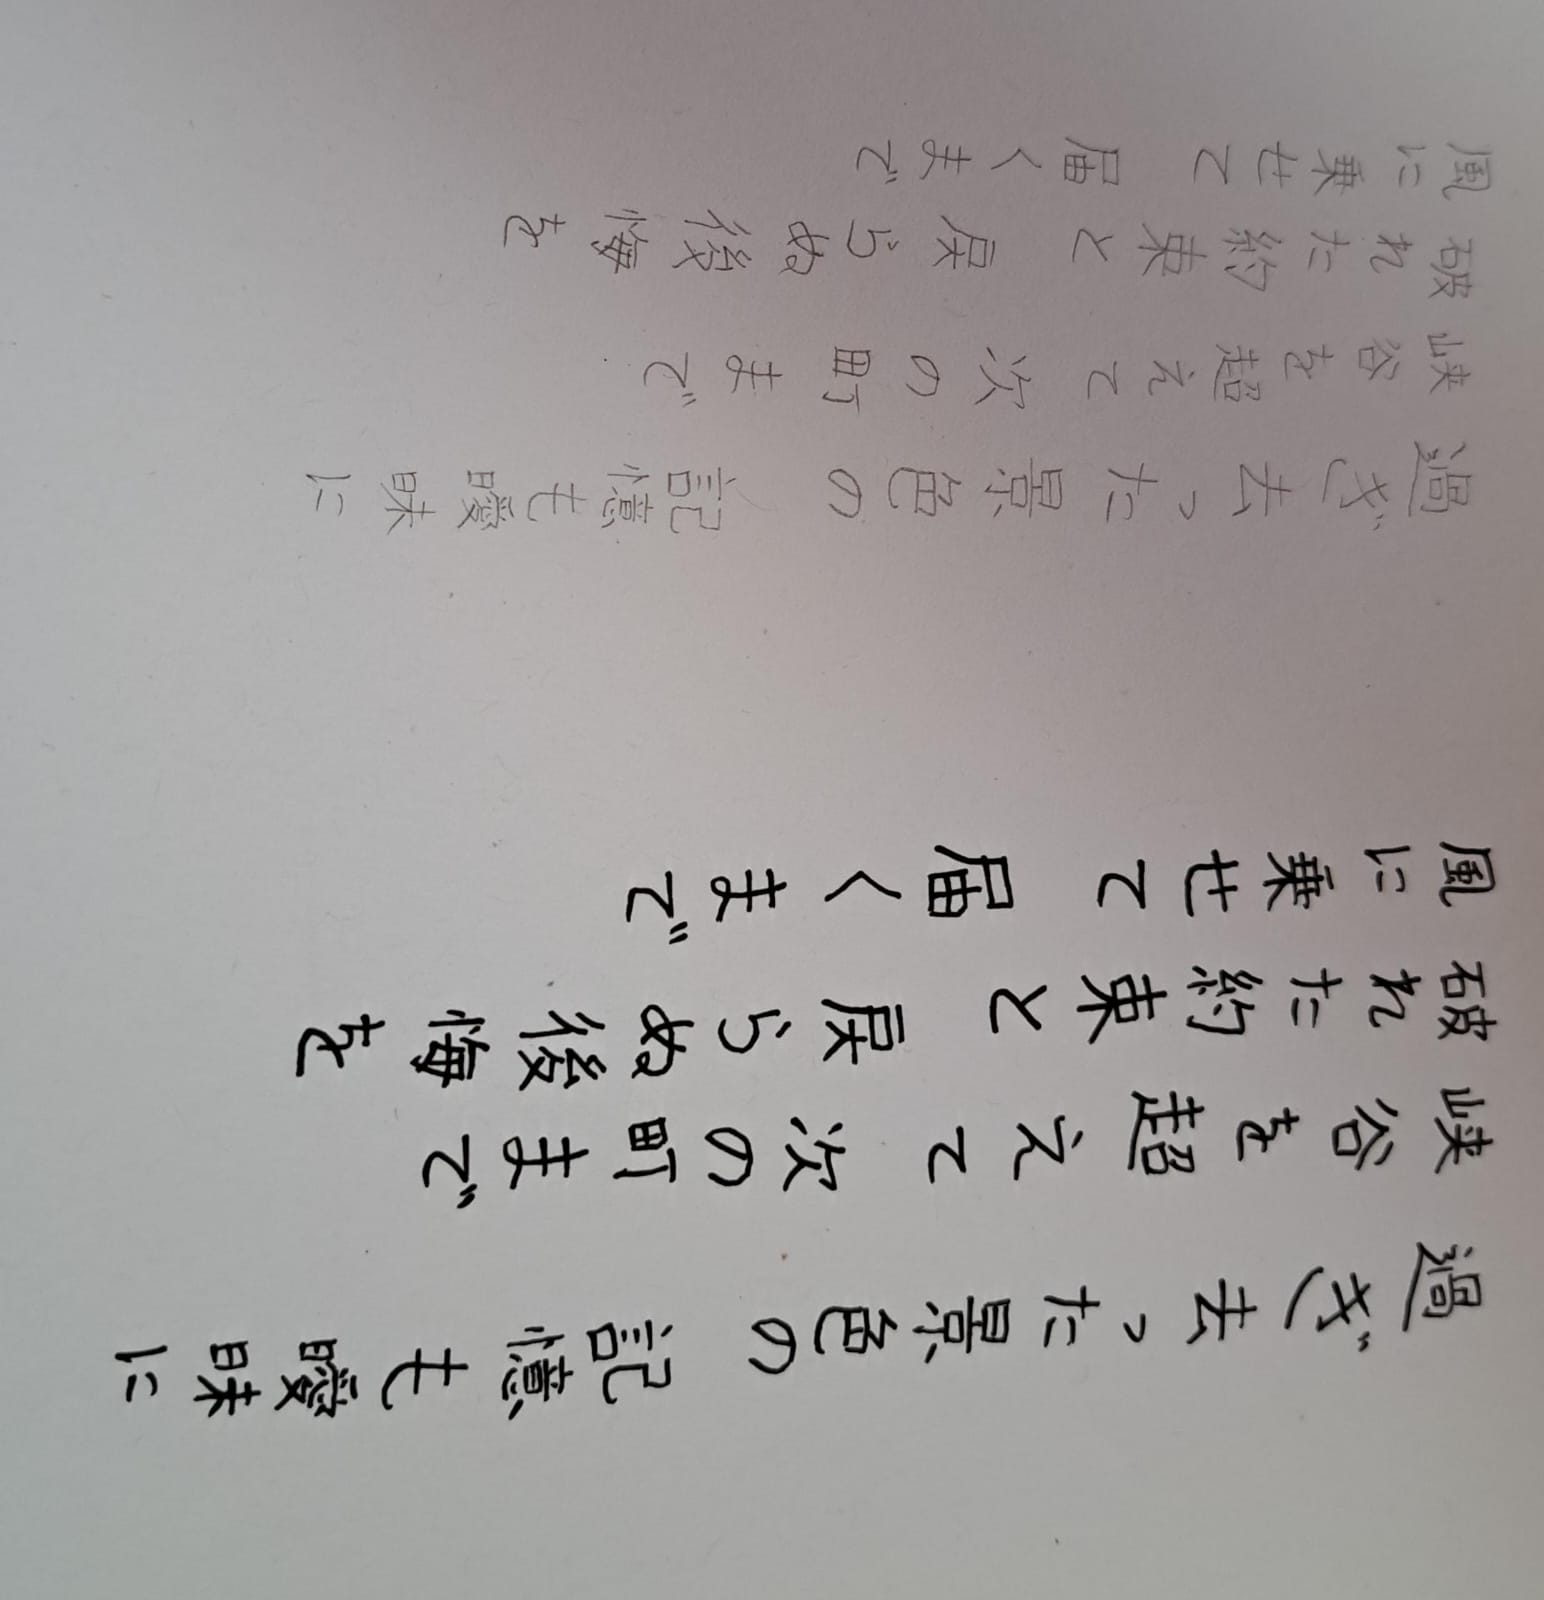 過ぎ去った景色の 記憶も曖昧に
峡谷を超えて 次の町まで
破れた約束と 戻らぬ後悔を
風に乗せて 届くまで
過ぎ去った景色の 記憶も曖昧に
峡谷を超えて 次の町まで
破れた約束と 戻らぬ後悔を
風に乗せて 届くまで